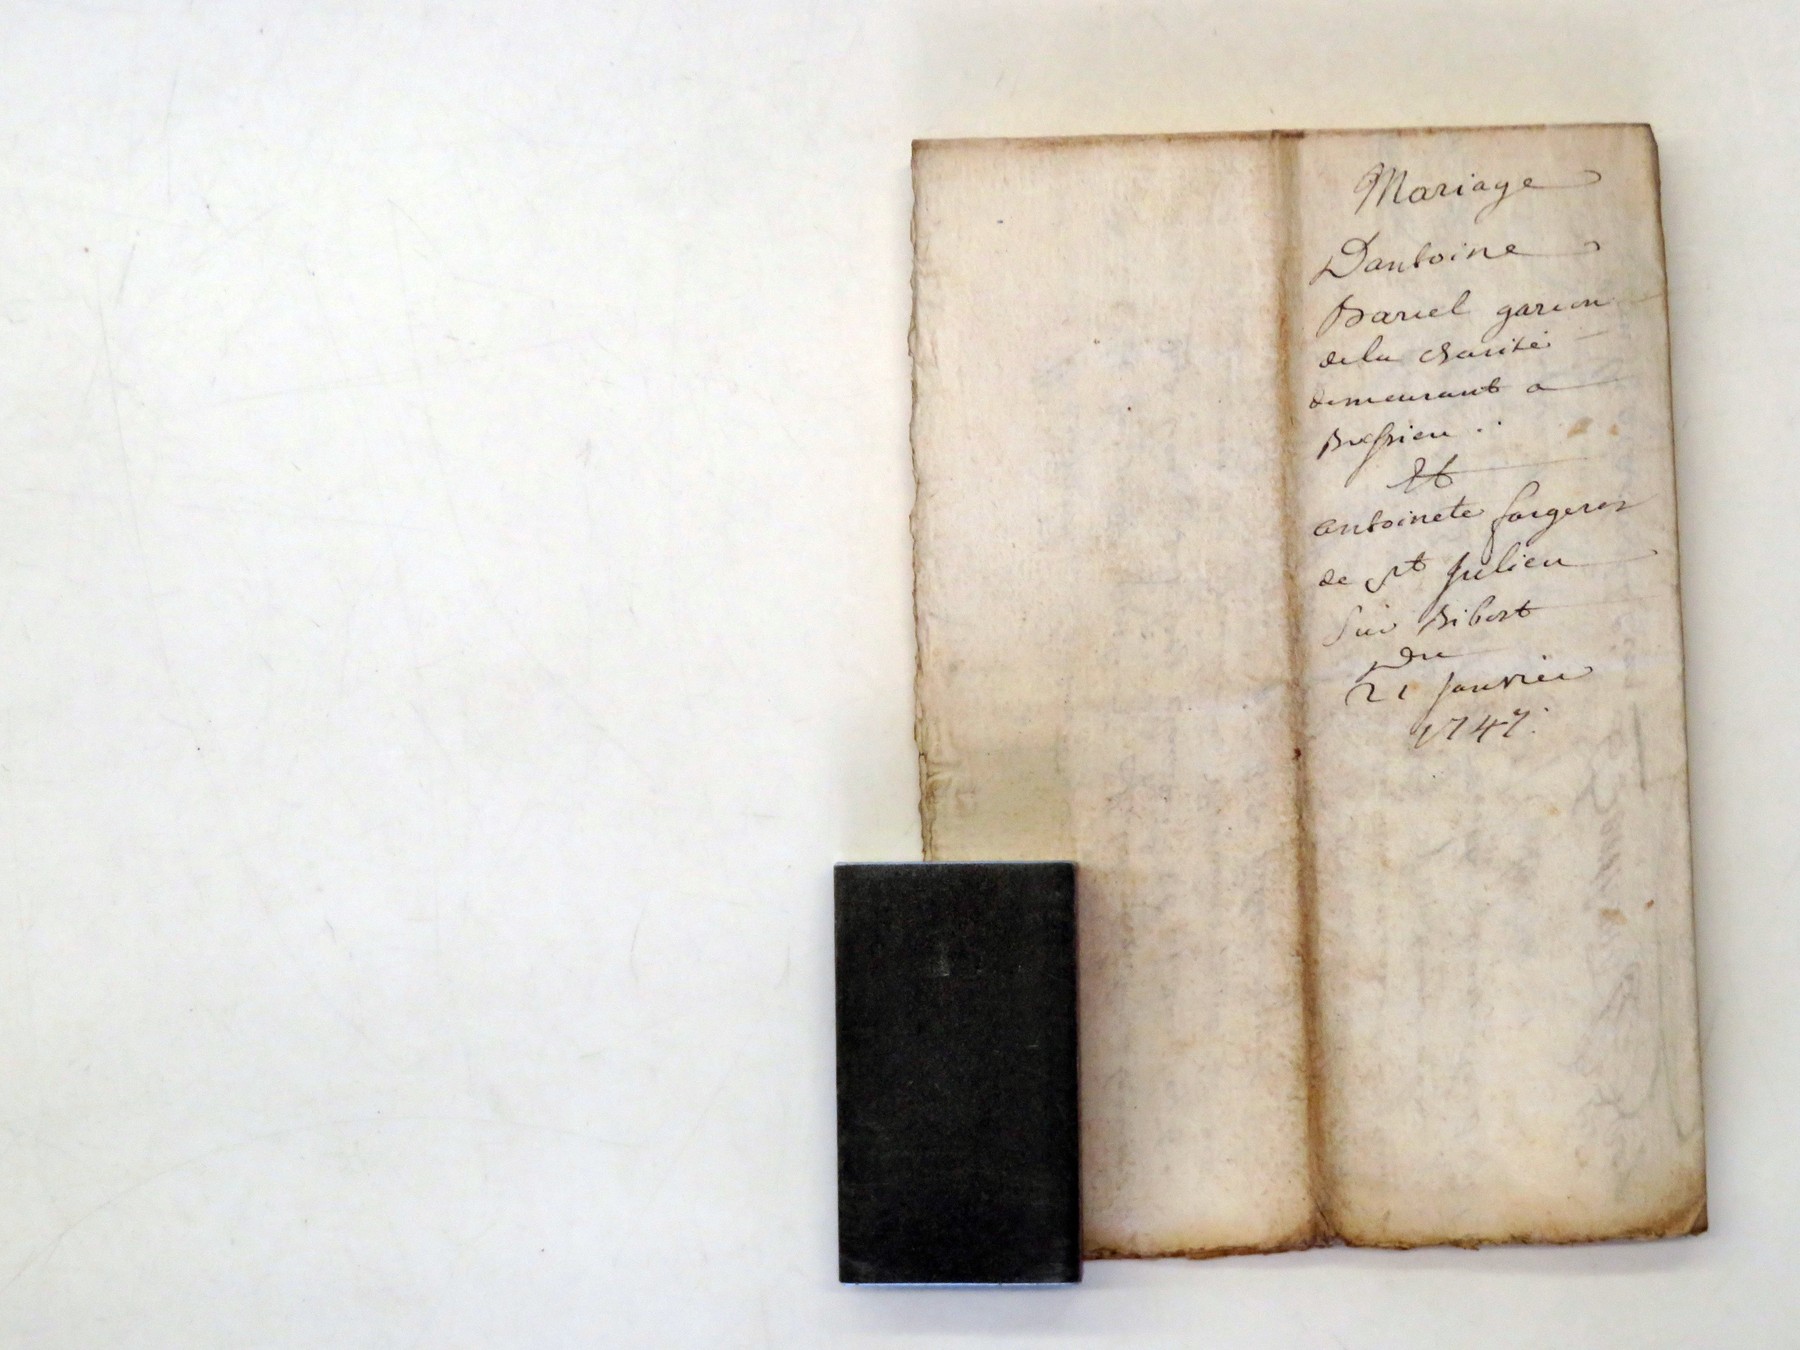 Mariage
Dantoine
Bariel garcon
de la charité
demeurant a
Bressieu
Et
antoinete fargeres
de St Julien
sur Bibost
Du
21 janvier
1747